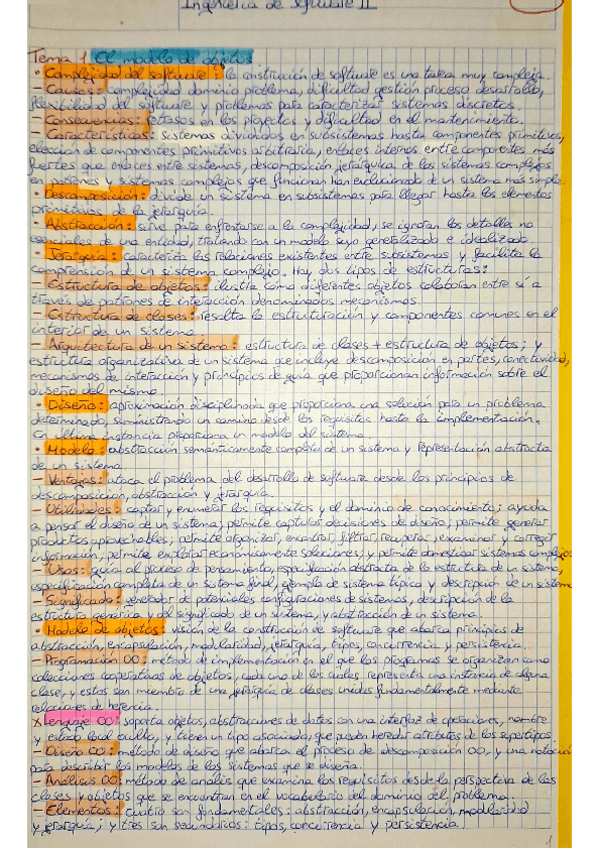 Ingeniería de Software II
Tema 1. El modelo de objetos
• Complejidad del software: la construcción de software es una tarea muy compleja.
– Causas: complejidad dominio problema, dificultad gestión proceso desarrollo,
flexibilidad del software y problemas para caracterizar sistemas discretos.
– Consecuencias: retrasos en los proyectos y dificultad en el mantenimiento.
– Características: sistemas divididos en subsistemas hasta componentes primitivos,
elección de componentes primitivos arbitraria, enlaces internos entre componentes más
fuertes que enlaces entre sistemas, descomposición jerárquica de los sistemas complejos
en patrones y sistemas complejos que funcionan han evolucionado de un sistema más simple.
• Descomposición: divide un sistema en subsistemas para llegar hasta los elementos
primitivos de la jerarquía.
• Abstracción: sirve para enfrentarse a la complejidad, se ignoran los detalles no
esenciales de una entidad, tratando con un modelo suyo generalizado e idealizado
• Jerarquía: caracteriza las relaciones existentes entre subsistemas y facilita la
comprensión de un sistema complejo. Hay dos tipos de estructuras:
– Estructura de objetos: ilustra cómo diferentes objetos colaboran entre sí a
través de patrones de interacción denominados mecanismos.
– Estructura de clases: resalta la estructuración y componentes comunes en el
interior de un sistema.
– Arquitectura de un sistema: estructura de clases + estructura de objetos; y
estructura organizativa de un sistema que incluye descomposición en partes, conectividad,
mecanismos de interacción y principios de guía que proporcionan información sobre el
diseño del mismo.
• Diseño: aproximación disciplinaria que proporciona una solución para un problema
determinado, suministrando un camino desde los requisitos hasta la implementación.
En última instancia proporciona un modelo del sistema.
• Modelo: abstracción semánticamente completa de un sistema y representación abstracta
de un sistema.
– Ventajas: ataca el problema del desarrollo de software desde los principios de
descomposición, abstracción y jerarquía.
– Utilidades: captar y enumerar los requisitos y el dominio de conocimiento; ayuda
a pensar el diseño de un sistema; permite capturar decisiones de diseño; permite generar
productos aprovechables; permite organizar, encontrar, filtrar, recuperar, examinar y corregir
información; permite explorar económicamente soluciones; y permite domesticar sistemas complejos
– Usos: guía al proceso de pensamiento, especificación abstracta de la estructura de un sistema,
especificación completa de un sistema final, ejemplo de sistema típica y descripción de un sistema
– Significado: generador de potenciales configuraciones de sistemas, descripción de la
estructura genérica y del significado de un sistema, y abstracción de un sistema.
• Modelo de objetos: visión de la construcción de software que abarca principios de
abstracción, encapsulación, modularidad, jerarquía, tipos, concurrencia y persistencia.
– Programación OO: método de implementación en el que los programas se organizan como
colecciones cooperativas de objetos, cada uno de los cuales representa una instancia de alguna
clase, y estas son miembro de una jerarquía de clases unidas fundamentalmente mediante
relaciones de herencia.
x Lenguaje OO: soporta objetos, abstracciones de datos con una interfaz de operaciones, nombre
y estado local oculto, y tienen un tipo asociado, que pueden heredar atributos de los supertipos.
– Diseño OO: método de diseño que abarca el proceso de descomposición OO, y una notación
para describir los modelos de los sistemas que se diseña.
– Análisis OO: método de análisis que examina los requisitos desde la perspectiva de las
clases y objetos que se encuentran en el vocabulario del dominio del problema.
– Elementos: cuatro son fundamentales: abstracción, encapsulación, modularidad
y jerarquía; y tres son secundarios: tipos, concurrencia y persistencia.
1